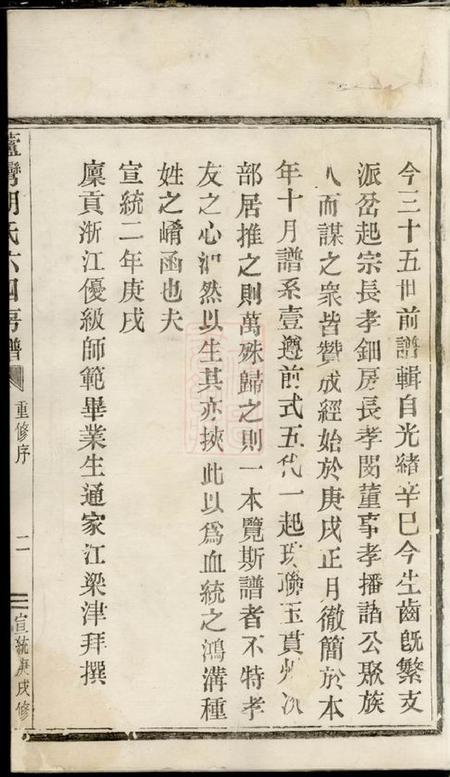 今三十五世前譜輯自光緒辛巳今生齒既繁支
派岔起宗長孝鈿房長孝閔董事孝播詣公聚族
人而謀之衆皆贊成經始於庚戌正月徹簡於本
年十月譜系壹遵前式五代一起珠聯玉貫州次
部居推之則萬殊歸之則一本覽斯譜者不特孝
友之心油然以生其亦挾此以爲血統之鴻溝種
姓之崤函也夫
宣統二年庚戌
廩貢浙江優級師範畢業生通家江梁津拜撰
蘆灣胡氏六四房譜
重修序
二
宣統庚戌修